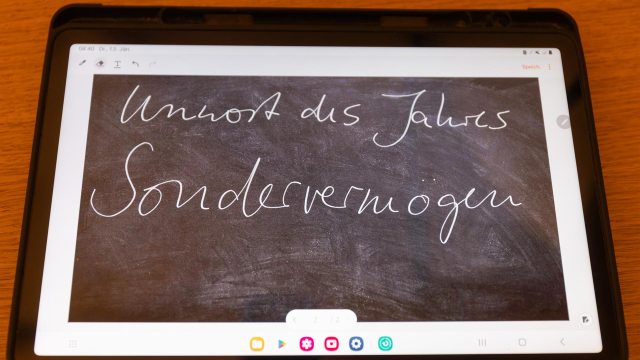 08:40 Di., 13. Jan.
Speich.
Unwort des Jahres
Sondervermögen